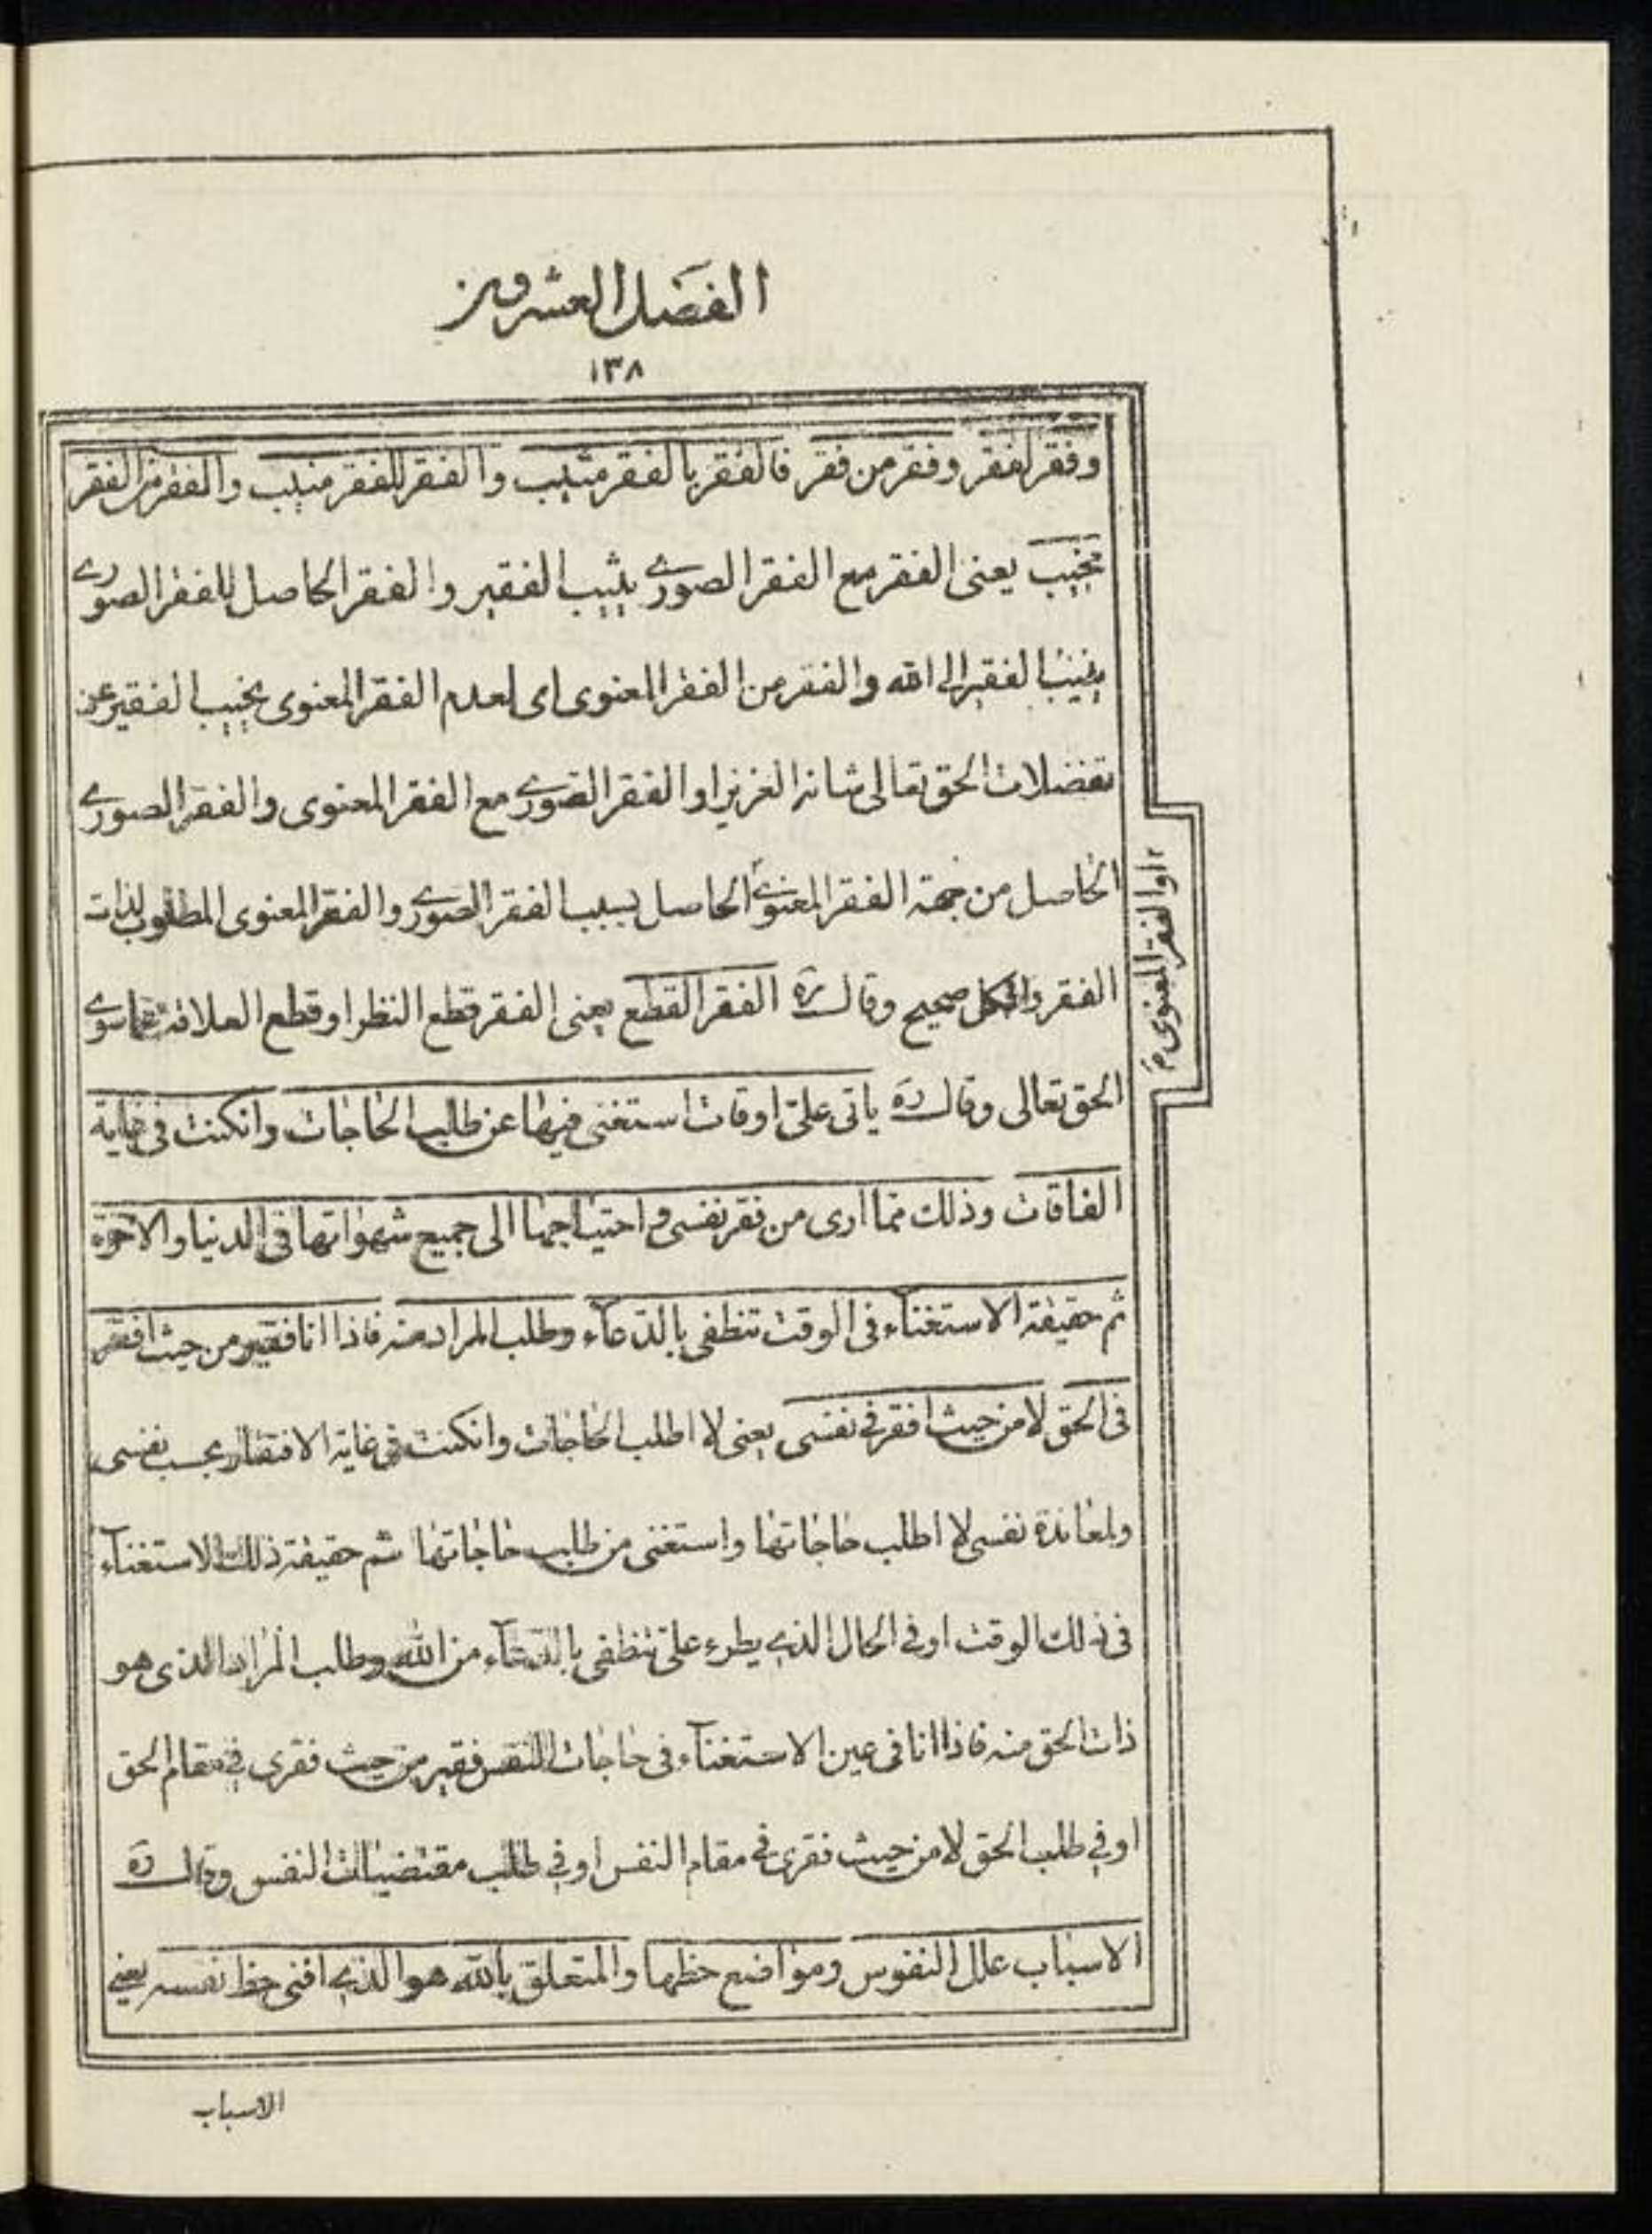 الفصل العشرون
١٣٨
وفقر لفقر وفقر من فقر فالفقر بالفقر مثيب والفقر للفقر منيب والفقر من الفقر
مخيب يعنى الفقر مع الفقر الصورے يثيب الفقير والفقر الحاصل للفقر الصورے
ينيب الفقير الى الله والفقر من الفقر المعنوى اى لعدم الفقر المعنوى يخيب الفقير عن
تفضلات الحق تعالى شانه العزيز او الفقر الصورے مع الفقر المعنوى والفقر الصورے
الحاصل من جهة الفقر المعنوے الحاصل بسبب الفقر الصورے والفقر المعنوى المطلوب لذات
او الفقر المعنوى م
الفقر والكل صحيح وقال ره الفقر القطع يعنى الفقر قطع النظر او قطع العلاقة عما سوے
الحق تعالى وقال ره ياتى علىّ اوقات استغنى فيها عن طلب الحاجات وانكنت فى غاية
الفاقات وذلك مما ارى من فقر نفسى واحتياجها الى جميع شهواتها فى الدنيا والاخرة
ثم حقيقة الاستغناء فى الوقت تنطفى بالدعاء وطلب المراد منه فاذا انا فقير من حيث افقر
فى الحق لا من حيث افقر فى نفسى يعنى لا اطلب الحاجات وانكنت فى غاية الافتقار بحسب نفسى
ولمعاندة نفسى لا اطلب حاجاتها واستغنى من طلب حاجاتها ثم حقيقة ذلك الاستغناء
فى ذلك الوقت او فى الحال الذے يطرء علىّ تنطفى بالدعاء من الله وطلب المراد الذى هو
ذات الحق منه فاذا انا فى عين الاستغناء فى حاجات النفس فقير من حيث فقرى فى مقام الحق
او فى طلب الحق لا من حيث فقرى فى مقام النفس او فى طلب مقتضيات النفس وقال ره
الاسباب علل النفوس ومواضع حظها والمتعلق بالله هو الذے افنى حظ نفسه يعنے
الاسباب